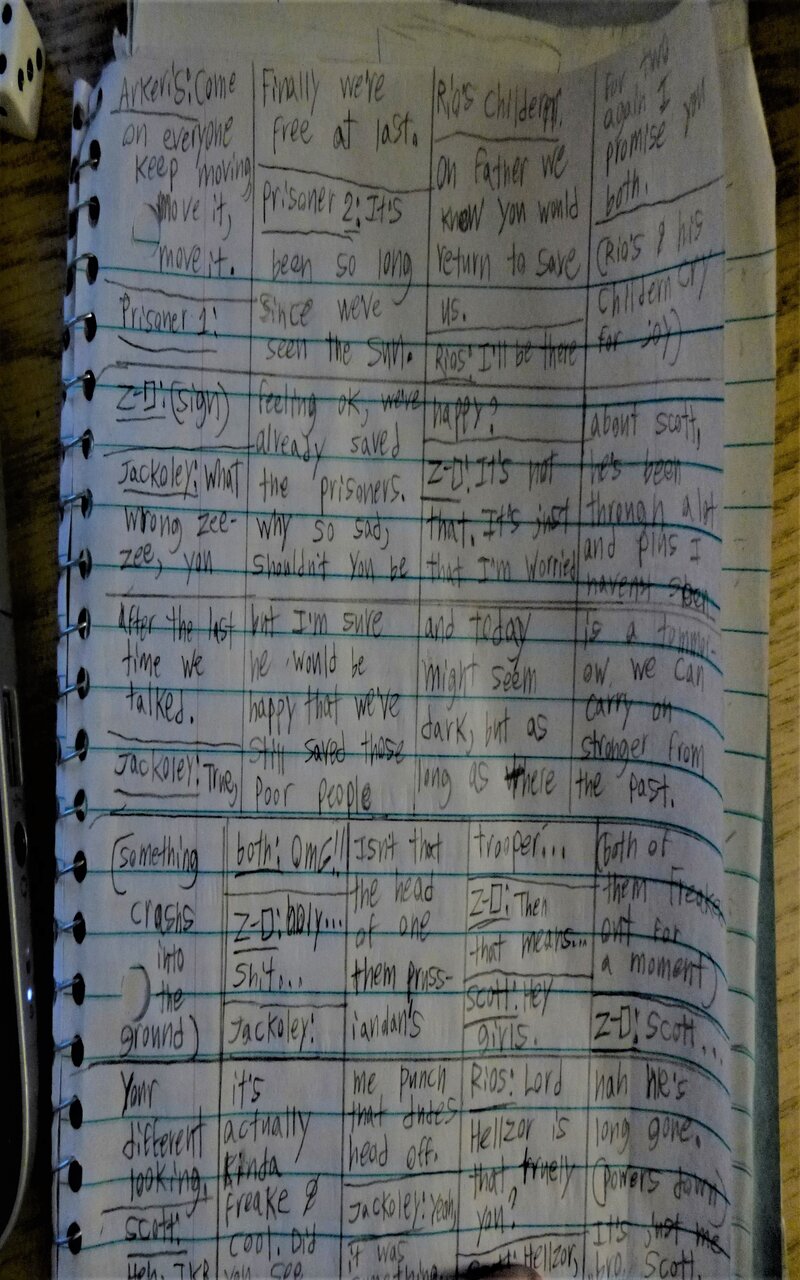 Arkeris: Come
on everyone
keep moving,
move it,
move it.
Prisoner 1:
Finally we're
free at last.
Prisoner 2: It's
been so long
since we've
seen the sun.
Rio's Childern:
Oh Father we
know you would
return to save
us.
Rios: I'll be there
for two
again I
promise you
both.
(Rio's & his
Childern cry
for joy)
Z-D: (sign)
Jackoley: What
wrong zee-
zee, you
feeling ok, we've
already saved
the prisoners.
why so sad,
shouldn't you be
happy?
Z-D: It's not
that. It's just
that I'm worried
about scott,
he's been
through alot
and plus I
havent seen
after the last
time we
talked.
Jackoley: True,
but I'm sure
he would be
happy that we've
still saved those
poor people
and today
might seem
dark, but as
long as there
is a tommor-
ow, we can
carry on
stronger from
the past.
(something
crashs
into
the
ground)
both: OMG!!
Z-D: holy...
shit...
Jackoley:
Isn't that
the head
of one
them pruss-
iandan's
trooper...
Z-D: Then
that means...
scott: Hey
girls.
(both of
them freake
out for
a moment)
Z-D: Scott...
Your
different
looking.
scott:
Heh, IKR
it's
actually
kinda
freake &
cool. Did
you see
me punch
that dudes
head off.
Jackoley: Yeah,
it was
something.
Rios: Lord
Hellzor is
that truely
you?
Hellzor,
nah he's
long gone.
(powers down)
It's just me
bro. Scott.